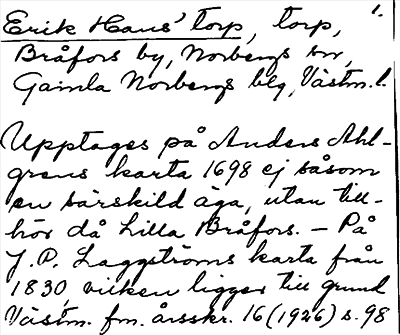 1.
Erik Hans' torp, torp,
Bråfors by, Norbergs sn,
Gamla Norbergs blg, Västm. l.
Upptages på Anders Ahl-
grens karta 1698 ej såsom
en särskild äga, utan till-
hör då Lilla Bråfors. – På
J. P. Laggströms karta från
1830, vilken ligger till grund
Västm. fm. årsskr. 16 (1926) s. 98